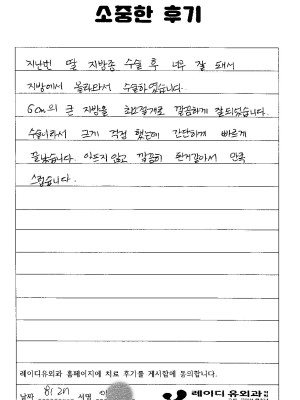 소중한 후기
지난번 딸 지방종 수술 후 너무 잘 돼서
지방에서 올라와서 수술하였습니다.
6cm의 큰 지방을 최소절개로 깔끔하게 잘되었습니다.
수술이라서 크게 걱정 했는데 간단하게 빠르게
끝났습니다. 아프지 않고 깔끔히 된거같아서 만족
스럽습니다.
레이디유외과 홈페이지에 치료 후기를 게시함에 동의합니다.
날짜 8/27 서명 이
레이디유외과